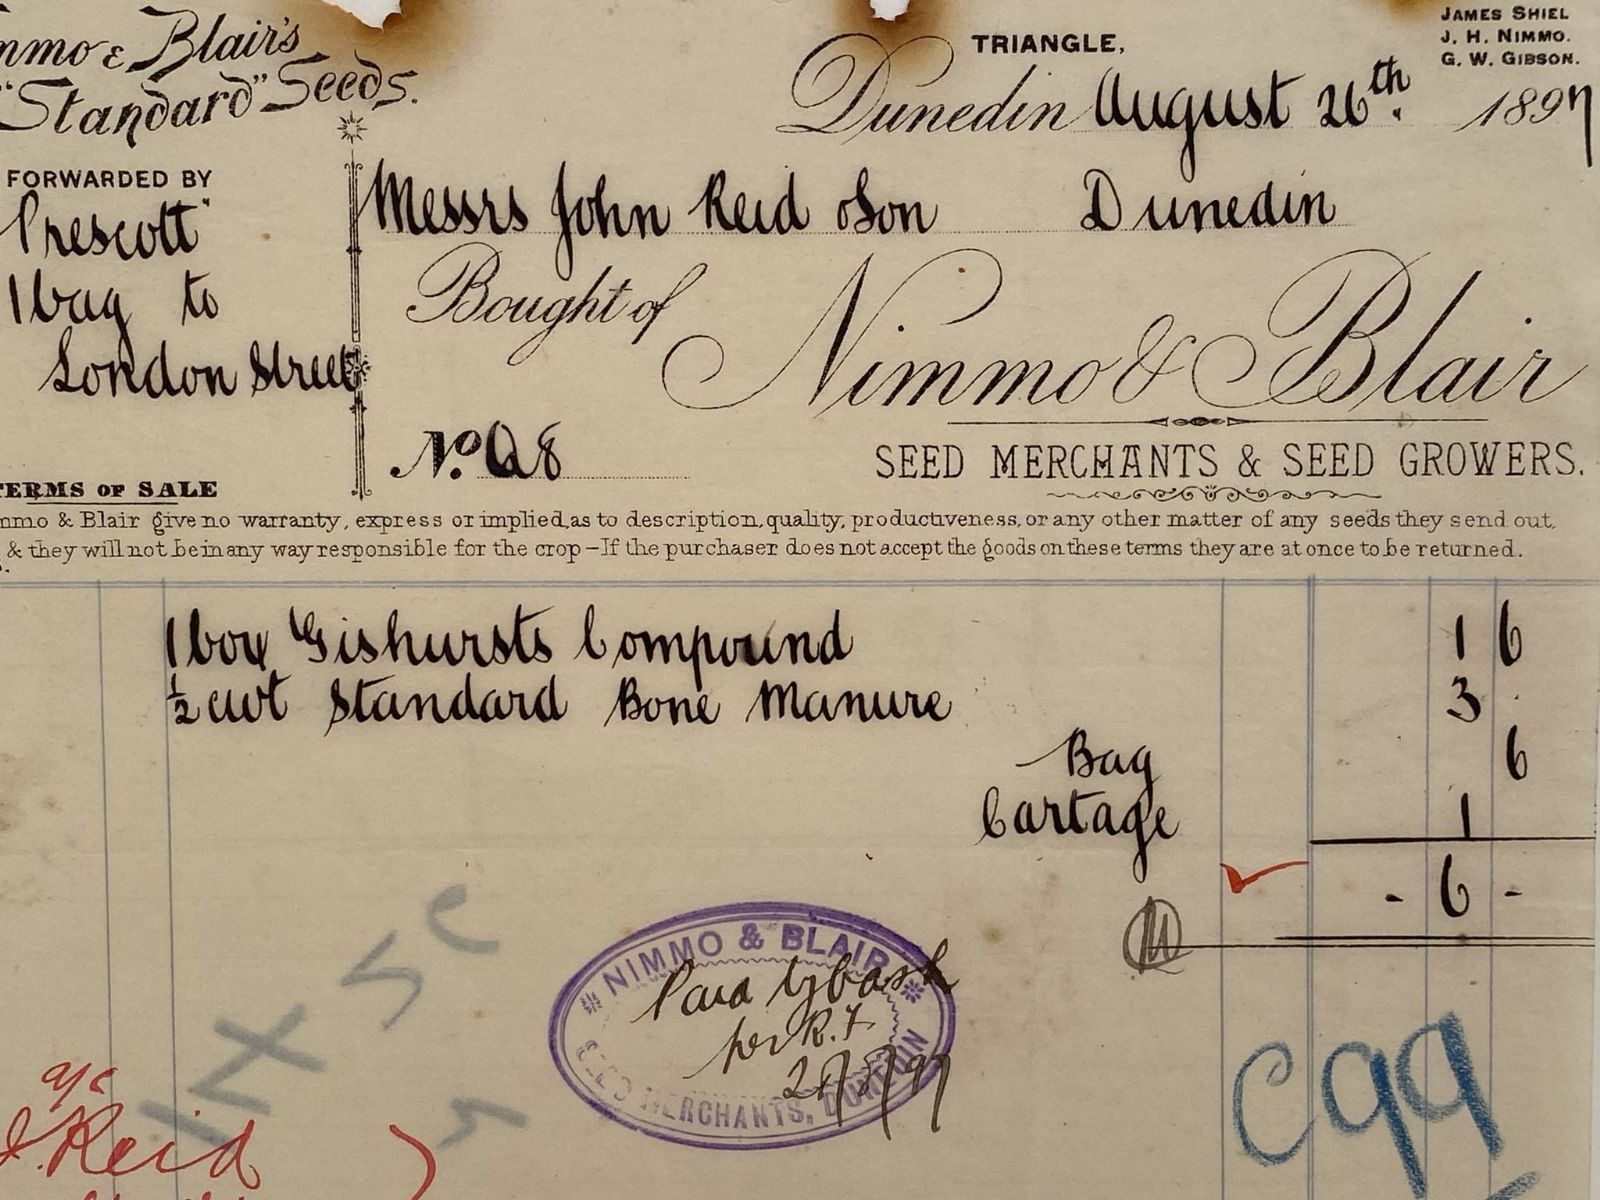 Nimmo & Blair's
"Standard" Seeds.
TRIANGLE,
JAMES SHIEL
J. H. NIMMO.
G. W. GIBSON.
Dunedin August 26th. 1897
FORWARDED BY
Prescott"
1 bag to
London Street
Messrs John Reid & Son Dunedin
Bought of
Nimmo & Blair
No. Q8
SEED MERCHANTS & SEED GROWERS.
TERMS OF SALE
mmo & Blair give no warranty, express or implied, as to description, quality, productiveness, or any other matter of any seeds they send out,
& they will not be in any way responsible for the crop - If the purchaser does not accept the goods on these terms they are at once to be returned.
1 box Gishursts Compound 1 6
½ cwt Standard Bone Manure 3 .
Bag 6
Cartage 1
- 6 -
NIMMO & BLAIR
Paid by Cash
per R.F.
SEED MERCHANTS, DUNEDIN
a/c
J. Reid
C99